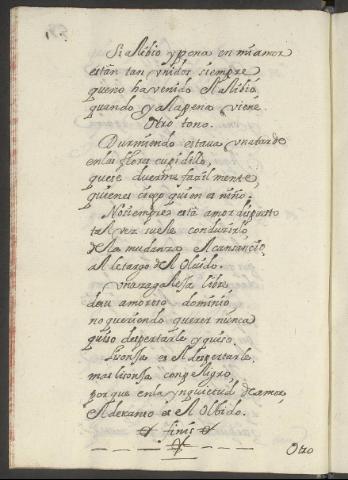 Si alibio y pena en mi amor
estan tan vnidos siempre
que no ha venido el alibio
quando ya la pena viene.
Otro tono.
Durmiendo estava vna tarde
en las flores cupidillo,
que se duerme facilmente,
quien es ciego quien es niño.
No siempre está amor dispuesto
tal vez suele conducirlo
de la mudanza el cansancio,
al letargo del oluido.
vna zagaleja libre
de su amoroso dominio
no queriendo querer nunca
quiso despertarle y quiso.
Lisonja es el despertarle,
mas lisonja con peligro,
porque en la ynquietud de amor
el descanso es el olbido.
finis
Otro